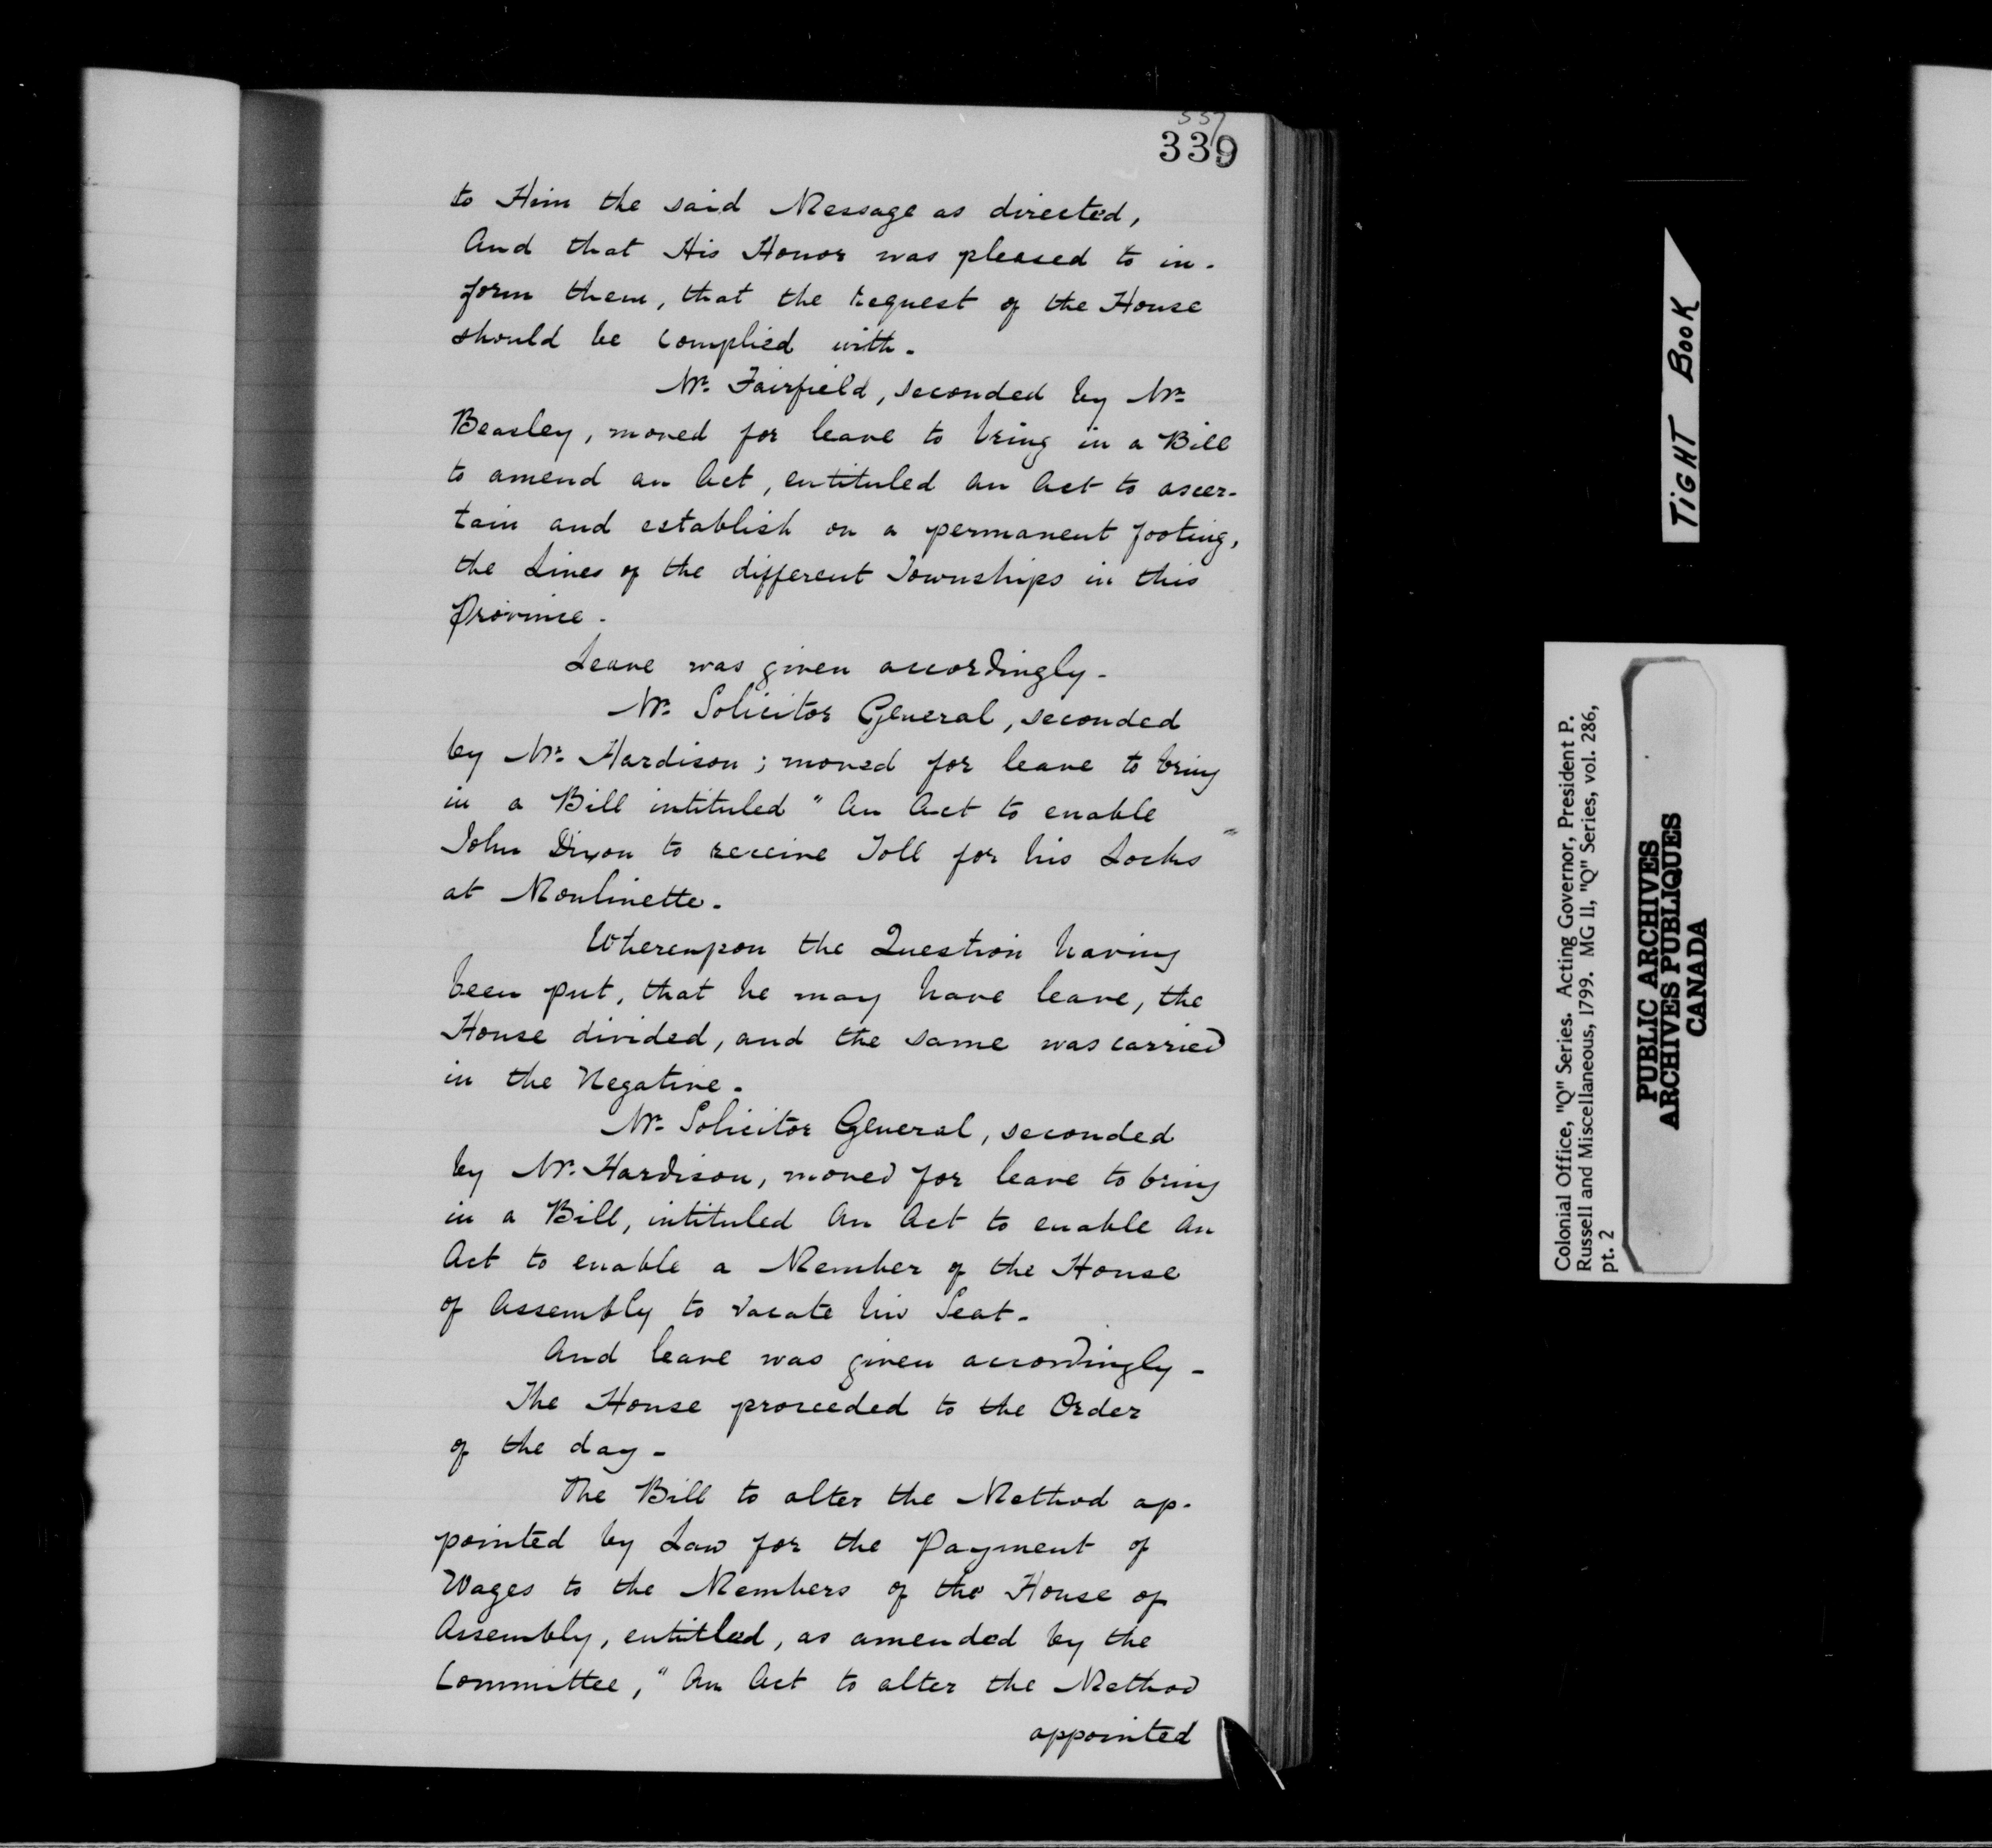 557
339
to Him the said Message as directed,
And that His Honor was pleased to in-
form them, that the request of the House
should be complied with.
Mr. Fairfield, seconded by Mr.
Beasley, moved for leave to bring in a Bill
to amend an Act, entituled An Act to ascer-
tain and establish on a permanent footing,
the Lines of the different Townships in this
Province.
Leave was given accordingly.
Mr. Solicitor General, seconded
by Mr. Hardison; moved for leave to bring
in a Bill intituled "An Act to enable
John Dixon to receive Toll for his Locks"
at Moulinette.
Whereupon the Question having
been put, that he may have leave, the
House divided, and the same was carried
in the Negative.
Mr. Solicitor General, seconded
by Mr. Hardison, moved for leave to bring
in a Bill, intituled An Act to enable An
Act to enable a Member of the House
of Assembly to vacate his Seat.
And leave was given accordingly -
The House proceeded to the Order
of the day -
The Bill to alter the Method ap-
pointed by Law for the Payment of
Wages to the Members of the House of
Assembly, entitled, as amended by the
Committee, "An Act to alter the Method
appointed
TIGHT BOOK
Colonial Office, "Q" Series. Acting Governor, President P.
Russell and Miscellaneous, 1799. MG 11, "Q" Series, vol. 286,
pt. 2
PUBLIC ARCHIVES
ARCHIVES PUBLIQUES
CANADA